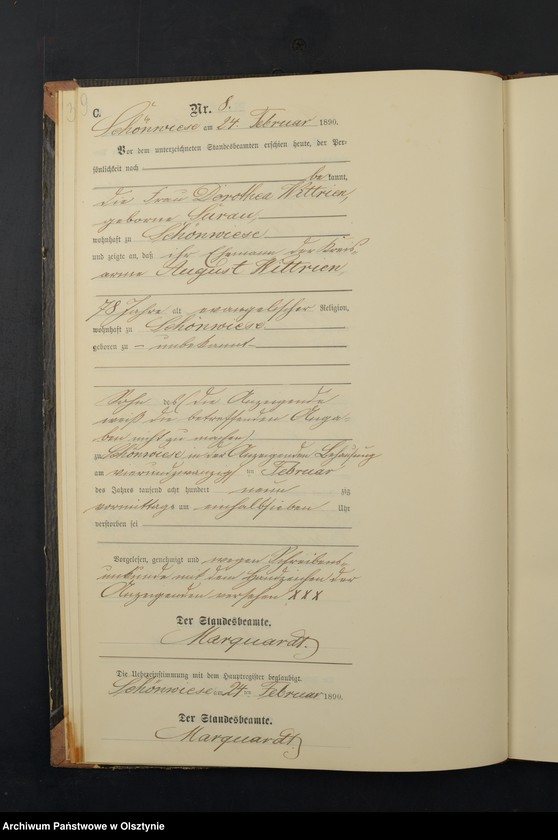 39
C.
Nr. 8.
Schönwiese am 24 Februar 1890.
Vor dem unterzeichneten Standesbeamten erschien heute, der Per-
sönlichkeit nach
be kannt,
die Frau Dorothea Wittrien,
geborne Surau,
wohnhaft zu Schönwiese
und zeigte an, daß ihr Ehemann der Kreis
arme August Wittrien,
78 Jahre alt evangelischer Religion,
wohnhaft zu Schönwiese
geboren zu – unbekannt –
Sohn (die Anzeigende
weiß die betreffenden Anga-
ben nicht zu machen)
zu Schönwiese, in der Anzeigenden Behausung
am vierundzwanzig ten Februar
des Jahres tausend acht hundert neun zig
vormittags um einhalbsieben Uhr
verstorben sei
Vorgelesen, genehmigt und wegen Schreibens-
unkunde mit dem Handzeichen der
Anzeigenden versehen XXX
Der Standesbeamte.
Marquardt.
Die Uebereinstimmung mit dem Hauptregister beglaubigt.
Schönwiese am 24 ten Februar 1890.
Der Standesbeamte.
Marquardt
Archiwum Państwowe w Olsztynie